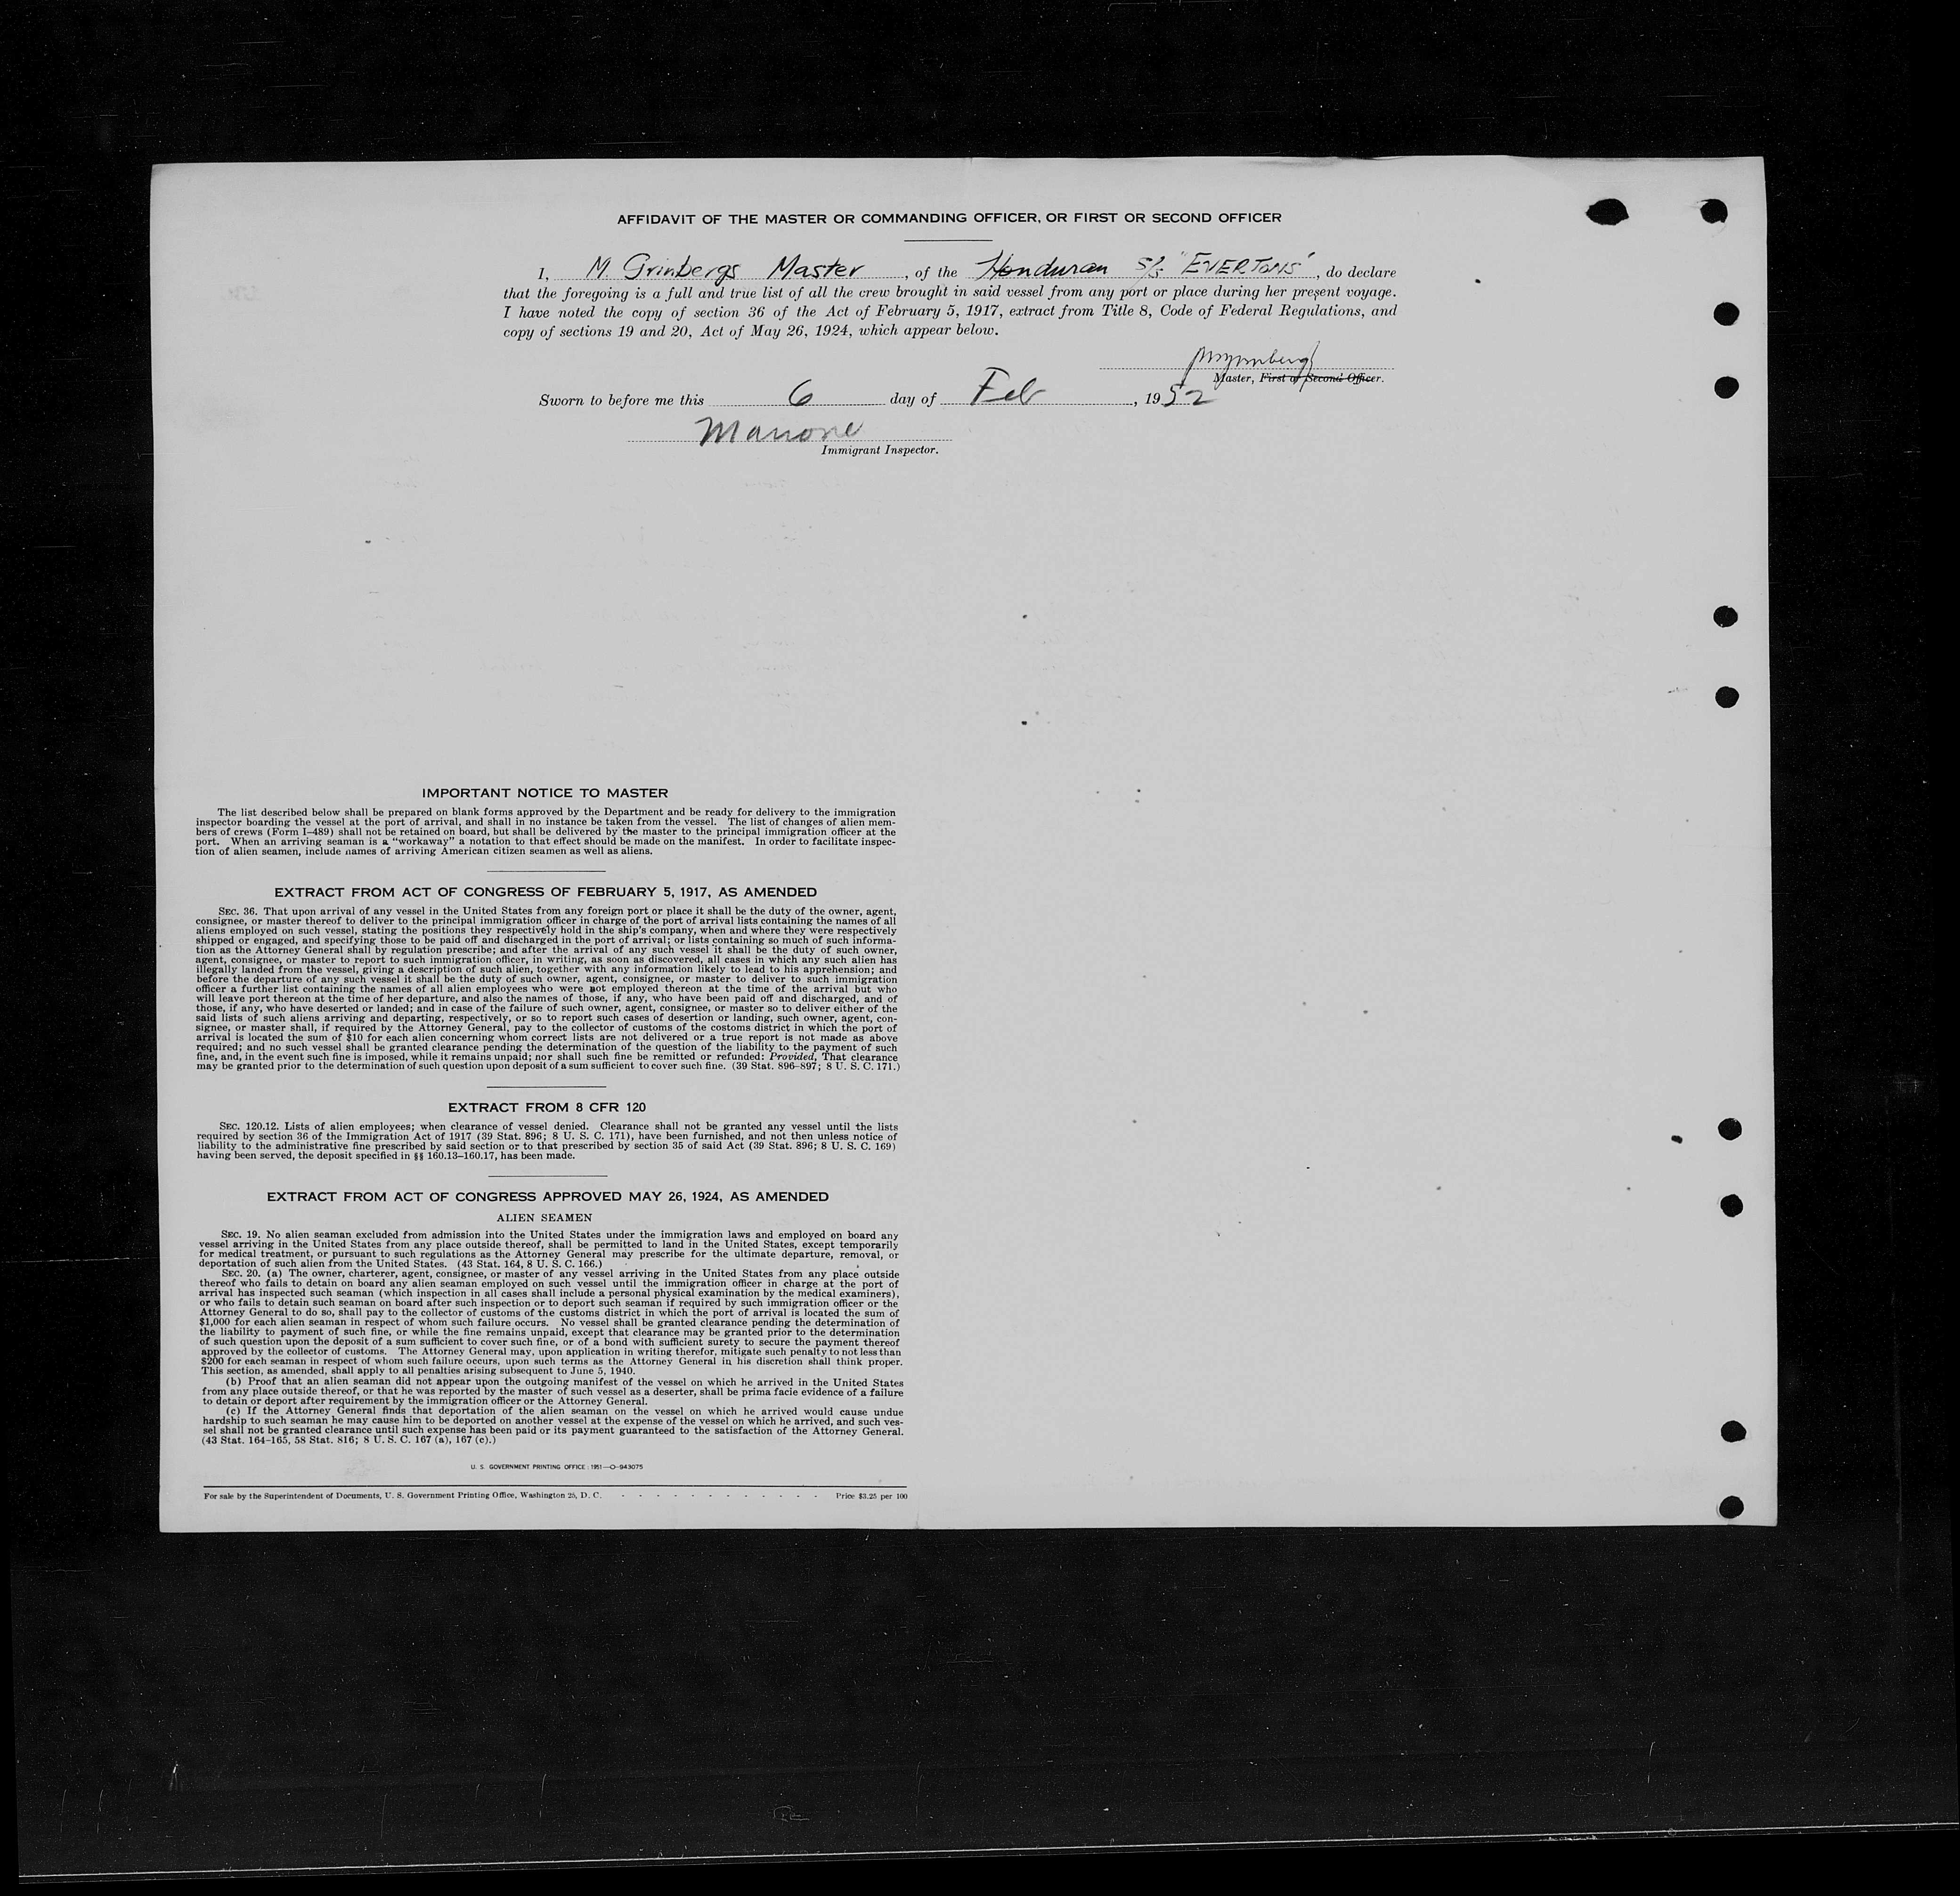 AFFIDAVIT OF THE MASTER OR COMMANDING OFFICER, OR FIRST OR SECOND OFFICER
I, M. Grinbergs Master, of the Honduran S/S "EVERTONS", do declare
that the foregoing is a full and true list of all the crew brought in said vessel from any port or place during her present voyage.
I have noted the copy of section 36 of the Act of February 5, 1917, extract from Title 8, Code of Federal Regulations, and
copy of sections 19 and 20, Act of May 26, 1924, which appear below.
Master, First or Second Officer.
Sworn to before me this 6 day of Feb, 1952
Immigrant Inspector.
IMPORTANT NOTICE TO MASTER
The list described below shall be prepared on blank forms approved by the Department and be ready for delivery to the immigration
inspector boarding the vessel at the port of arrival, and shall in no instance be taken from the vessel. The list of changes of alien mem-
bers of crews (Form I–489) shall not be retained on board, but shall be delivered by the master to the principal immigration officer at the
port. When an arriving seaman is a "workaway" a notation to that effect should be made on the manifest. In order to facilitate inspec-
tion of alien seamen, include names of arriving American citizen seamen as well as aliens.
EXTRACT FROM ACT OF CONGRESS OF FEBRUARY 5, 1917, AS AMENDED
SEC. 36. That upon arrival of any vessel in the United States from any foreign port or place it shall be the duty of the owner, agent,
consignee, or master thereof to deliver to the principal immigration officer in charge of the port of arrival lists containing the names of all
aliens employed on such vessel, stating the positions they respectively hold in the ship's company, when and where they were respectively
shipped or engaged, and specifying those to be paid off and discharged in the port of arrival; or lists containing so much of such informa-
tion as the Attorney General shall by regulation prescribe; and after the arrival of any such vessel it shall be the duty of such owner,
agent, consignee, or master to report to such immigration officer, in writing, as soon as discovered, all cases in which any such alien has
illegally landed from the vessel, giving a description of such alien, together with any information likely to lead to his apprehension; and
before the departure of any such vessel it shall be the duty of such owner, agent, consignee, or master to deliver to such immigration
officer a further list containing the names of all alien employees who were not employed thereon at the time of the arrival but who
will leave port thereon at the time of her departure, and also the names of those, if any, who have been paid off and discharged, and of
those, if any, who have deserted or landed; and in case of the failure of such owner, agent, consignee, or master so to deliver either of the
said lists of such aliens arriving and departing, respectively, or so to report such cases of desertion or landing, such owner, agent, con-
signee, or master shall, if required by the Attorney General, pay to the collector of customs of the costoms district in which the port of
arrival is located the sum of $10 for each alien concerning whom correct lists are not delivered or a true report is not made as above
required; and no such vessel shall be granted clearance pending the determination of the question of the liability to the payment of such
fine, and, in the event such fine is imposed, while it remains unpaid; nor shall such fine be remitted or refunded: Provided, That clearance
may be granted prior to the determination of such question upon deposit of a sum sufficient to cover such fine. (39 Stat. 896–897; 8 U. S. C. 171.)
EXTRACT FROM 8 CFR 120
SEC. 120.12. Lists of alien employees; when clearance of vessel denied. Clearance shall not be granted any vessel until the lists
required by section 36 of the Immigration Act of 1917 (39 Stat. 896; 8 U. S. C. 171), have been furnished, and not then unless notice of
liability to the administrative fine prescribed by said section or to that prescribed by section 35 of said Act (39 Stat. 896; 8 U. S. C. 169)
having been served, the deposit specified in §§ 160.13–160.17, has been made.
EXTRACT FROM ACT OF CONGRESS APPROVED MAY 26, 1924, AS AMENDED
ALIEN SEAMEN
SEC. 19. No alien seaman excluded from admission into the United States under the immigration laws and employed on board any
vessel arriving in the United States from any place outside thereof, shall be permitted to land in the United States, except temporarily
for medical treatment, or pursuant to such regulations as the Attorney General may prescribe for the ultimate departure, removal, or
deportation of such alien from the United States. (43 Stat. 164, 8 U. S. C. 166.)
SEC. 20. (a) The owner, charterer, agent, consignee, or master of any vessel arriving in the United States from any place outside
thereof who fails to detain on board any alien seaman employed on such vessel until the immigration officer in charge at the port of
arrival has inspected such seaman (which inspection in all cases shall include a personal physical examination by the medical examiners),
or who fails to detain such seaman on board after such inspection or to deport such seaman if required by such immigration officer or the
Attorney General to do so, shall pay to the collector of customs of the customs district in which the port of arrival is located the sum of
$1,000 for each alien seaman in respect of whom such failure occurs. No vessel shall be granted clearance pending the determination of
the liability to payment of such fine, or while the fine remains unpaid, except that clearance may be granted prior to the determination
of such question upon the deposit of a sum sufficient to cover such fine, or of a bond with sufficient surety to secure the payment thereof
approved by the collector of customs. The Attorney General may, upon application in writing therefor, mitigate such penalty to not less than
$200 for each seaman in respect of whom such failure occurs, upon such terms as the Attorney General in his discretion shall think proper.
This section, as amended, shall apply to all penalties arising subsequent to June 5, 1940.
(b) Proof that an alien seaman did not appear upon the outgoing manifest of the vessel on which he arrived in the United States
from any place outside thereof, or that he was reported by the master of such vessel as a deserter, shall be prima facie evidence of a failure
to detain or deport after requirement by the immigration officer or the Attorney General.
(c) If the Attorney General finds that deportation of the alien seaman on the vessel on which he arrived would cause undue
hardship to such seaman he may cause him to be deported on another vessel at the expense of the vessel on which he arrived, and such ves-
sel shall not be granted clearance until such expense has been paid or its payment guaranteed to the satisfaction of the Attorney General.
(43 Stat. 164–165, 58 Stat. 816; 8 U. S. C. 167 (a), 167 (c).)
U. S. GOVERNMENT PRINTING OFFICE : 1951—O-943075
For sale by the Superintendent of Documents, U. S. Government Printing Office, Washington 25, D. C. - - - - - - - - - - - - Price $3.25 per 100